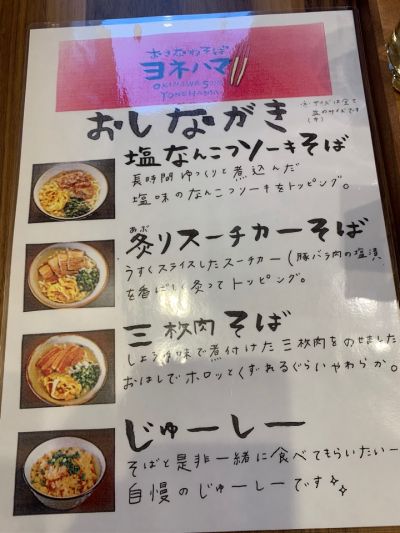 おきなわそば
ヨネハマ
OKINAWA SOBA
YONEHAMA
おしながき
塩なんこつソーキそば
長時間ゆっくりと煮込んだ
塩味のなんこつソーキをトッピング。
あぶ
炙りスーチカーそば
うすくスライスしたスーチカー(豚バラ肉の塩漬
を香ばしく炙ってトッピング。
三枚肉そば
しょうゆ味で煮付けた三枚肉をのせました
おはしでホロッとくずれるぐらいやわらか。
じゅーしー
そばと是非一緒に食べてもらいたいー
自慢のじゅーしーです